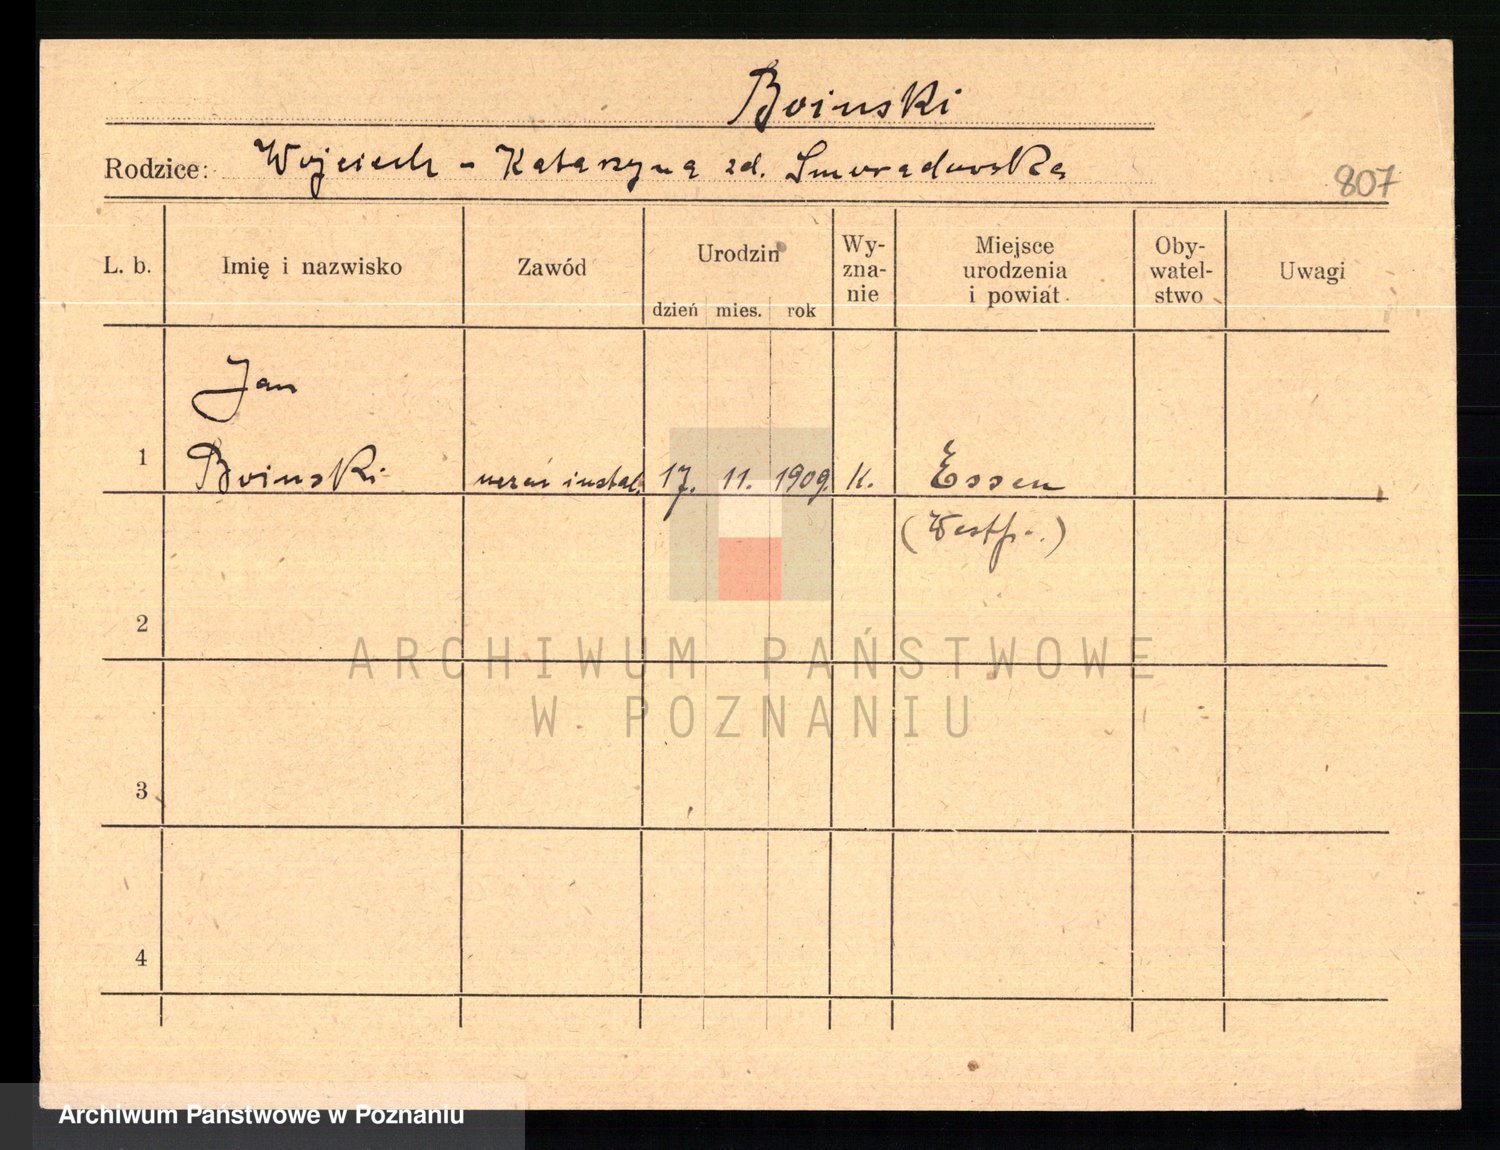 Boinski
Rodzice: Wojciech - Katarzyna zd. Smoradowska
807
L. b. Imię i nazwisko Zawód Urodzin Wy-zna-nie Miejsce urodzenia i powiat Oby-watel-stwo Uwagi
dzień mies. rok
Jan
1 Boinski uczeń instal. 17. 11. 1909. K. Essen
(Westf..)
2
ARCHIWUM PAŃSTWOWE
W POZNANIU
3
4
Archiwum Państwowe w Poznaniu